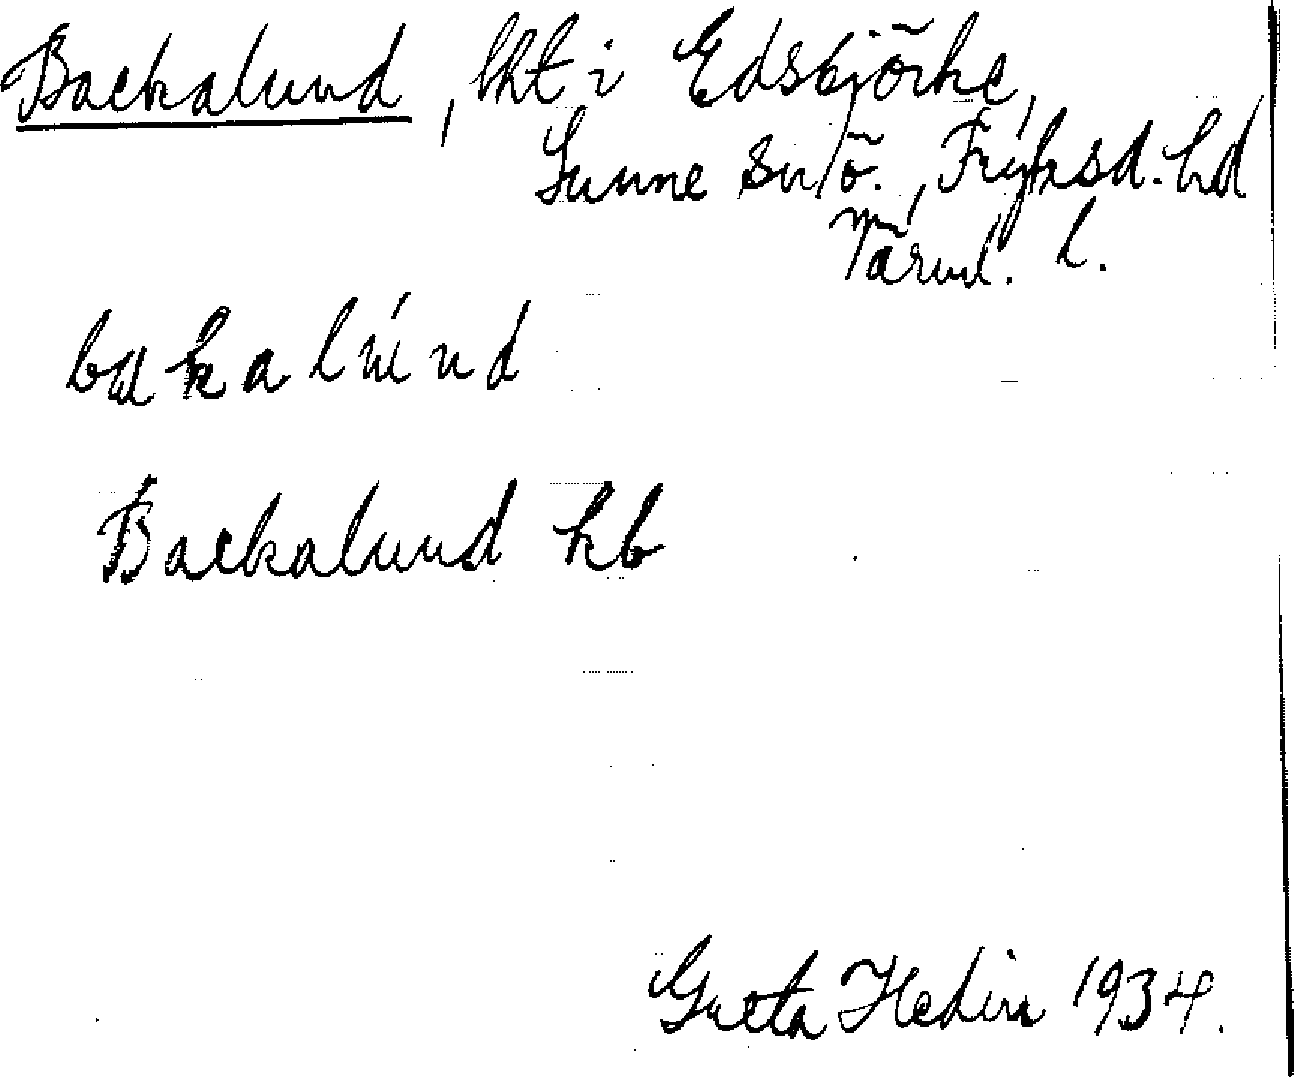 Backalund, lht i Edsbjörke,
Sunne sn, ö., Fryksd. hd
Värml. l.
bakalund
Backalund hb
Greta Hedin 1934.